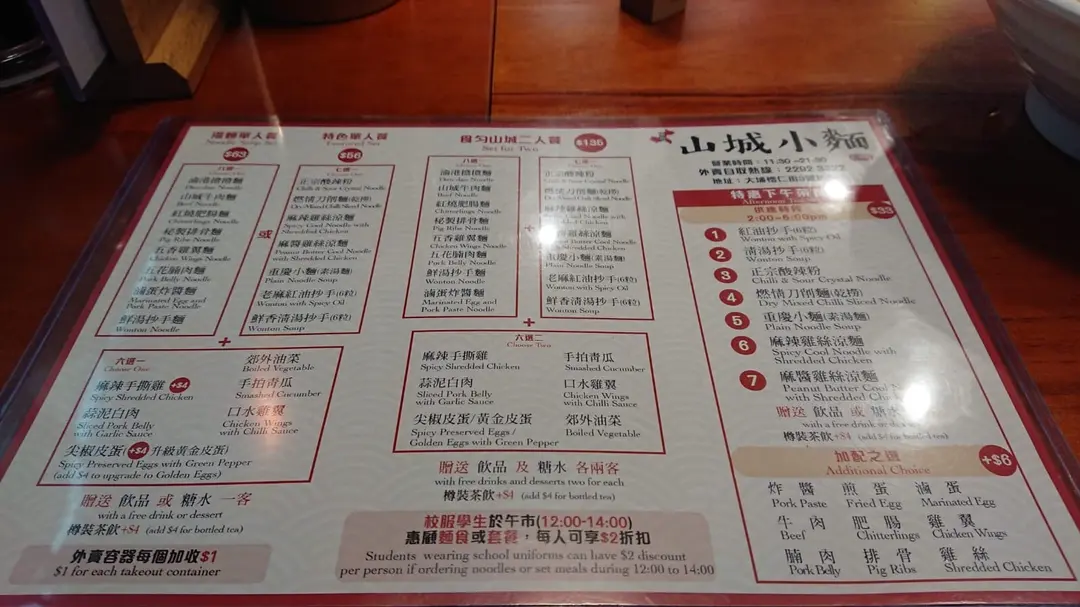 單人餐
Noodle Soup Set
$63
八選一
山城牛肉麵
Beef Noodle
紅燒肥腸麵
Chitterlings Noodle
秘製排骨麵
Pig Ribs Noodle
五香雞翼麵
Chicken Wings Noodle
五花腩肉麵
Pork Belly Noodle
滷蛋炸醬麵
Marinated Egg and
Pork Paste Noodle
鮮湯抄手麵
Wonton Noodle
或
特色單人餐
Featured Set
$66
七選一
正宗酸辣粉
Chilli & Sour Crystal Noodle
燃情刀削麵(乾撈)
Dry Mixed Chili Sliced Noodle
麻辣雞絲涼麵
Spicy Cool Noodle with
Shredded Chicken
麻醬雞絲涼麵
Peanut Butter Cool Noodle
with Shredded Chicken
重慶小麵(素湯麵)
Plain Noodle Soup
老麻紅油抄手(6粒)
Wonton with Spicy Oil
鮮香清湯抄手(6粒)
Wonton Soup
+
六選一
Choose One
麻辣手撕雞 +$4
Spicy Shredded Chicken
蒜泥白肉
Sliced Pork Belly
with Garlic Sauce
郊外油菜
Boiled Vegetable
手拍青瓜
Smashed Cucumber
口水雞翼
Chicken Wings
with Chilli Sauce
尖椒皮蛋(+$4升級黃金皮蛋)
Spicy Preserved Eggs with Green Pepper
(add $4 to upgrade to Golden Eggs)
贈送 飲品 或 糖水 一客
with a free drink or dessert
樽裝茶飲+$4 (add $4 for bottled tea)
外賣容器每個加收$1
$1 for each takeout container
食勻山城二人餐
Set for Two
$135
八選一
山城牛肉麵
Beef Noodle
紅燒肥腸麵
Chitterlings Noodle
秘製排骨麵
Pig Ribs Noodle
五香雞翼麵
Chicken Wings Noodle
五花腩肉麵
Pork Belly Noodle
鮮湯抄手麵
Wonton Noodle
滷蛋炸醬麵
Marinated Egg and
Pork Paste Noodle
+
七選一
正宗酸辣粉
Chilli & Sour Crystal Noodle
燃情刀削麵(乾撈)
Dry Mixed Chili Sliced Noodle
雞絲涼麵
Cool Noodle with
Shredded Chicken
雞絲涼麵
Butter Cool Noodle
with Shredded Chicken
重慶小麵(素湯麵)
Plain Noodle Soup
老麻紅油抄手(6粒)
Wonton with Spicy Oil
鮮香清湯抄手(6粒)
Wonton Soup
+
六選二
Choose Two
麻辣手撕雞
Spicy Shredded Chicken
蒜泥白肉
Sliced Pork Belly
with Garlic Sauce
尖椒皮蛋/黃金皮蛋
Spicy Preserved Eggs /
Golden Eggs with Green Pepper
手拍青瓜
Smashed Cucumber
口水雞翼
Chicken Wings
with Chilli Sauce
郊外油菜
Boiled Vegetable
贈送 飲品 及 糖水 各兩客
with free drinks and desserts two for each
樽裝茶飲+$4 (add $4 for bottled tea)
校服學生於午市(12:00-14:00)
惠顧麵食或套餐，每人可享$2折扣
Students wearing school uniforms can have $2 discount
per person if ordering noodles or set meals during 12:00 to 14:00
山城小麵
營業時間：11:30 -21:30
外賣自取熱線：2292
地址：大埔懷仁街
特惠下午茶
Afternoon Tea
供應時段
2:00~6:00pm
$33
1 紅油抄手(6粒)
Wonton with Spicy Oil
2 清湯抄手(6粒)
Wonton Soup
3 正宗酸辣粉
Chilli & Sour Crystal Noodle
4 燃情刀削麵(乾撈)
Dry Mixed Chili Sliced Noodle
5 重慶小麵(素湯麵)
Plain Noodle Soup
6 麻辣雞絲涼麵
Spicy Cool Noodle with
Shredded Chicken
7 麻醬雞絲涼麵
Peanut Butter Cool
with Shredded Chicken
贈送 飲品 或 糖水
with a free drink or
樽裝茶飲+$4 (add $4 for bottled tea)
加配之選
Additional Choice
+$6
炸醬 煎蛋 滷蛋
Pork Paste Fried Egg Marinated Egg
牛肉 肥腸 雞翼
Beef Chitterlings Chicken Wings
腩肉 排骨 雞絲
Pork Belly Pig Ribs Shredded Chicken